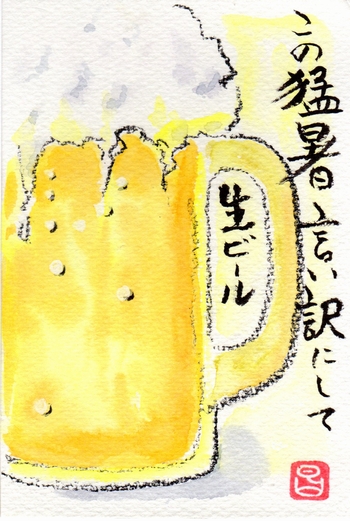 この猛暑言い訳にして
生ビール
昌